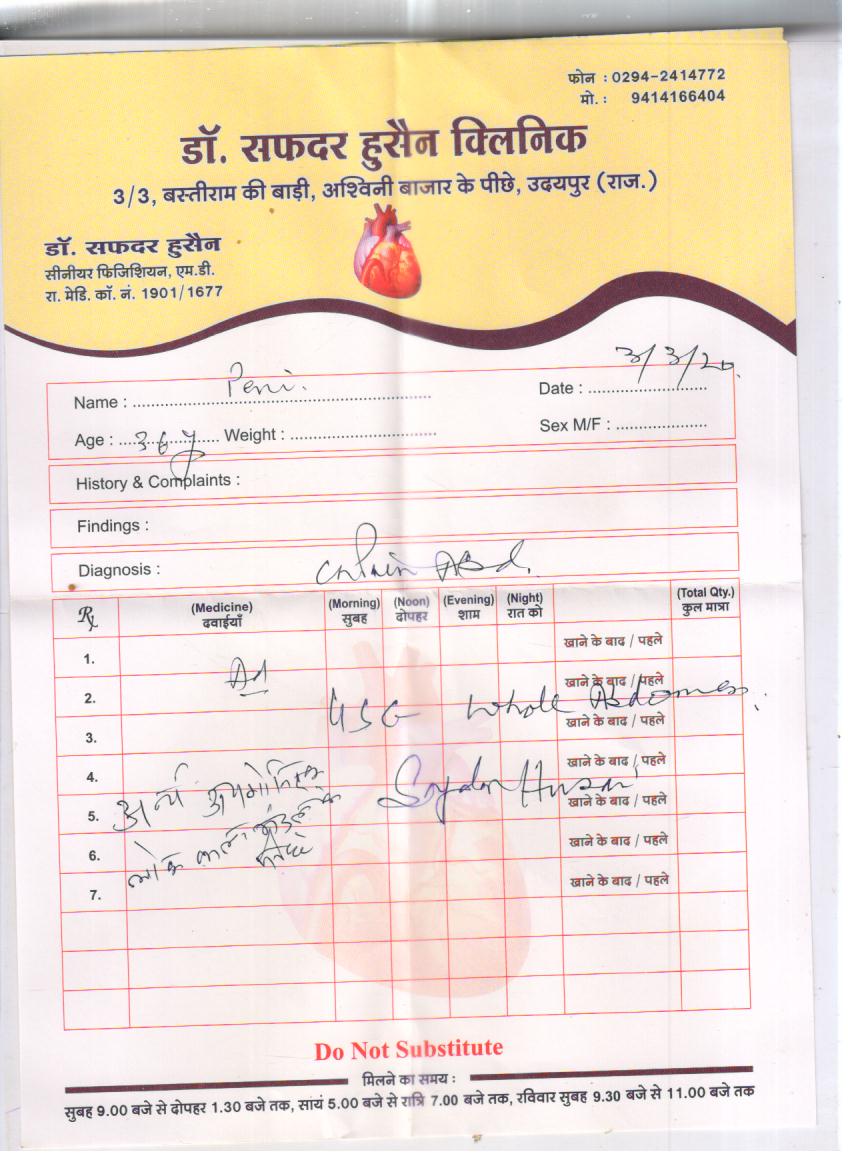 फोन : 0294-2414772
मो. : 9414166404
डॉ. सफदर हुसैन क्लिनिक
3/3, बस्तीराम की बाड़ी, अश्विनी बाजार के पीछे, उदयपुर (राज.)
डॉ. सफदर हुसैन
सीनीयर फिजिशियन, एम.डी.
रा. मेडि. कॉ. नं. 1901/1677
Name : Date : 3/3/20
Age : 36 y Weight : Sex M/F :
History & Complaints :
Findings :
Diagnosis : Abd.
Rx (Medicine) (Morning) (Noon) (Evening) (Night) (Total Qty.)
दवाईयाँ सुबह दोपहर शाम रात को कुल मात्रा
1. खाने के बाद / पहले
Ad
2. खाने के बाद / पहले
USG Whole Abdomen.
3. खाने के बाद / पहले
4. खाने के बाद / पहले
5. अन्य खाने के बाद / पहले
6. खाने के बाद / पहले
7. खाने के बाद / पहले
Do Not Substitute
मिलने का समय :
सुबह 9.00 बजे से दोपहर 1.30 बजे तक, सांयं 5.00 बजे से रात्रि 7.00 बजे तक, रविवार सुबह 9.30 बजे से 11.00 बजे तक